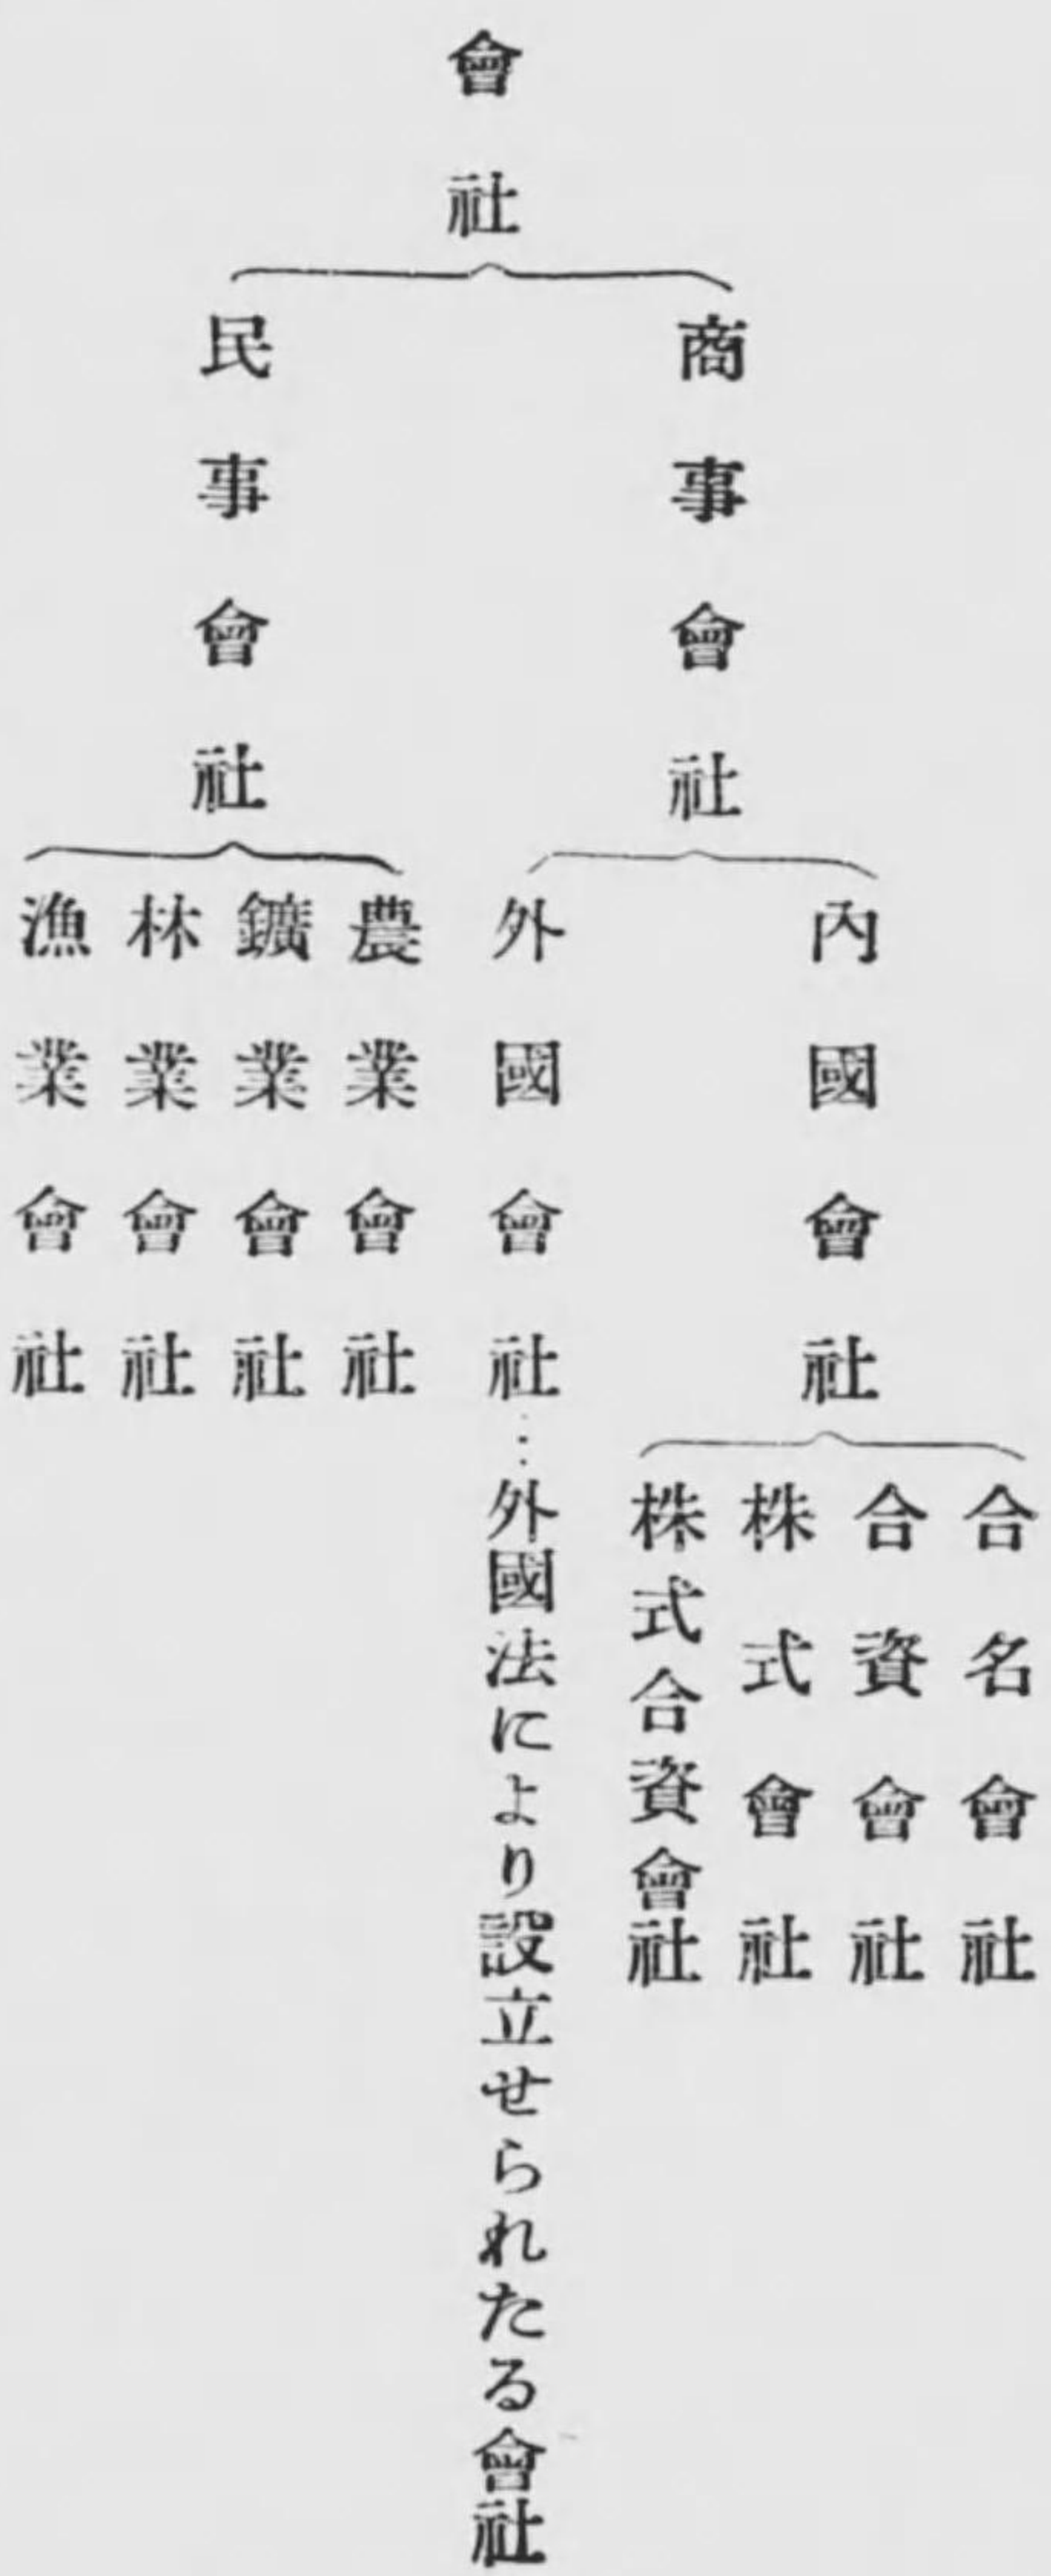 會社
商事會社
內國會社
合名會社
合資會社
株式會社
株式合資會社
外國會社…外國法により設立せられたる會社
民事會社
農業會社
鑛業會社
林業會社
漁業會社